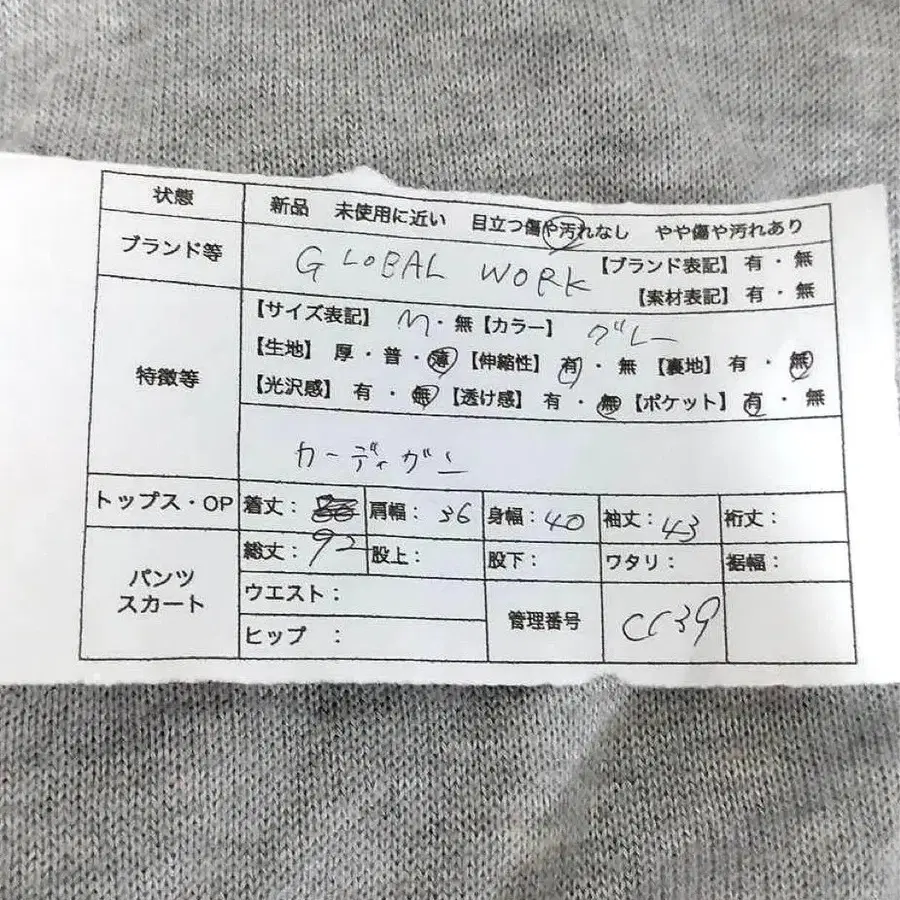 状態 新品 未使用に近い 目立つ傷や汚れなし やや傷や汚れあり
ブランド等 GLOBAL WORK 【ブランド表記】 有・無
【素材表記】 有・無
特徴等 【サイズ表記】 M・無 【カラー】 グレー
【生地】 厚・普・薄 【伸縮性】 有・無 【裏地】 有・無
【光沢感】 有・無 【透け感】 有・無 【ポケット】 有・無
カーディガン
トップス・OP 着丈: 肩幅: 36 身幅: 40 袖丈: 43 裄丈:
パンツ スカート 総丈: 92 股上: 股下: ワタリ: 裾幅:
ウエスト: 管理番号 CC39
ヒップ :